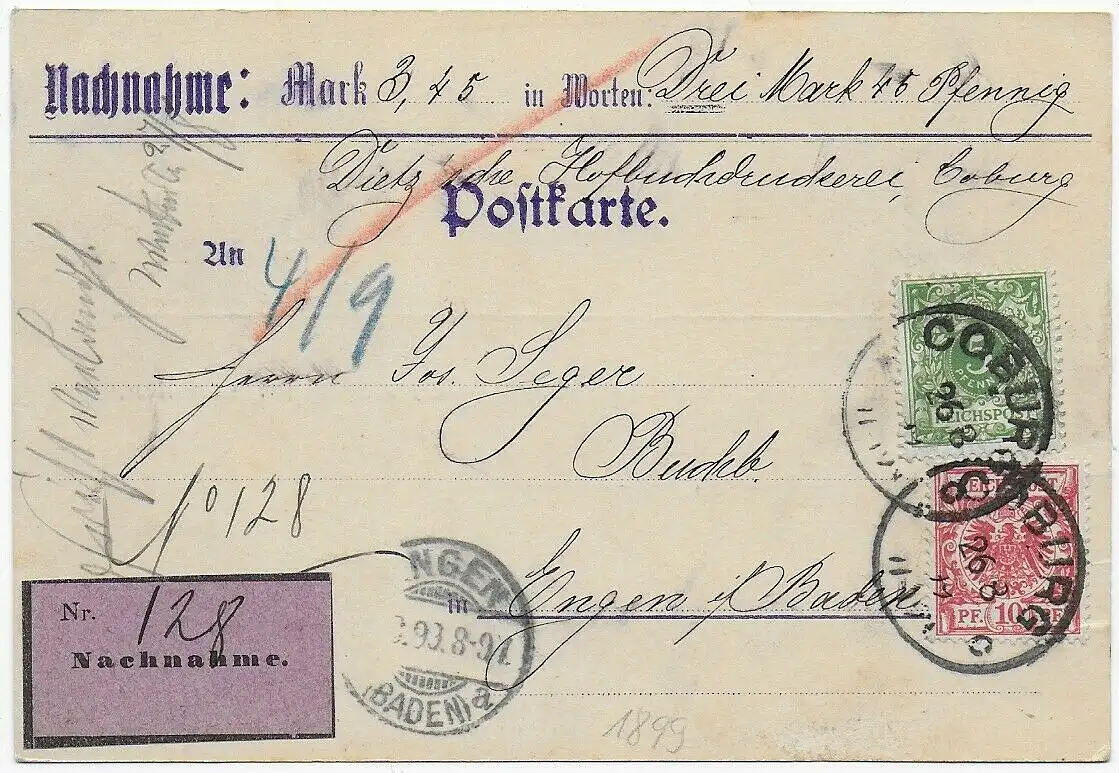 Nachnahme: Mark 3,45 in Worten: Drei Mark 45 Pfennig
Dietz'sche Hofbuchdruckerei, Coburg
Postkarte.
An
4/9
Herrn Jos. Seger
Buchb.
No 128
in Engen i/Baden
Nr. 128
Nachnahme.
NGEN
.93.8-9V.
(BADEN) a
5
PFENNIG
REICHSPOST
COBURG
26 8
REICHSPOST
PF. 10 PF.
COBURG
26 8
1899